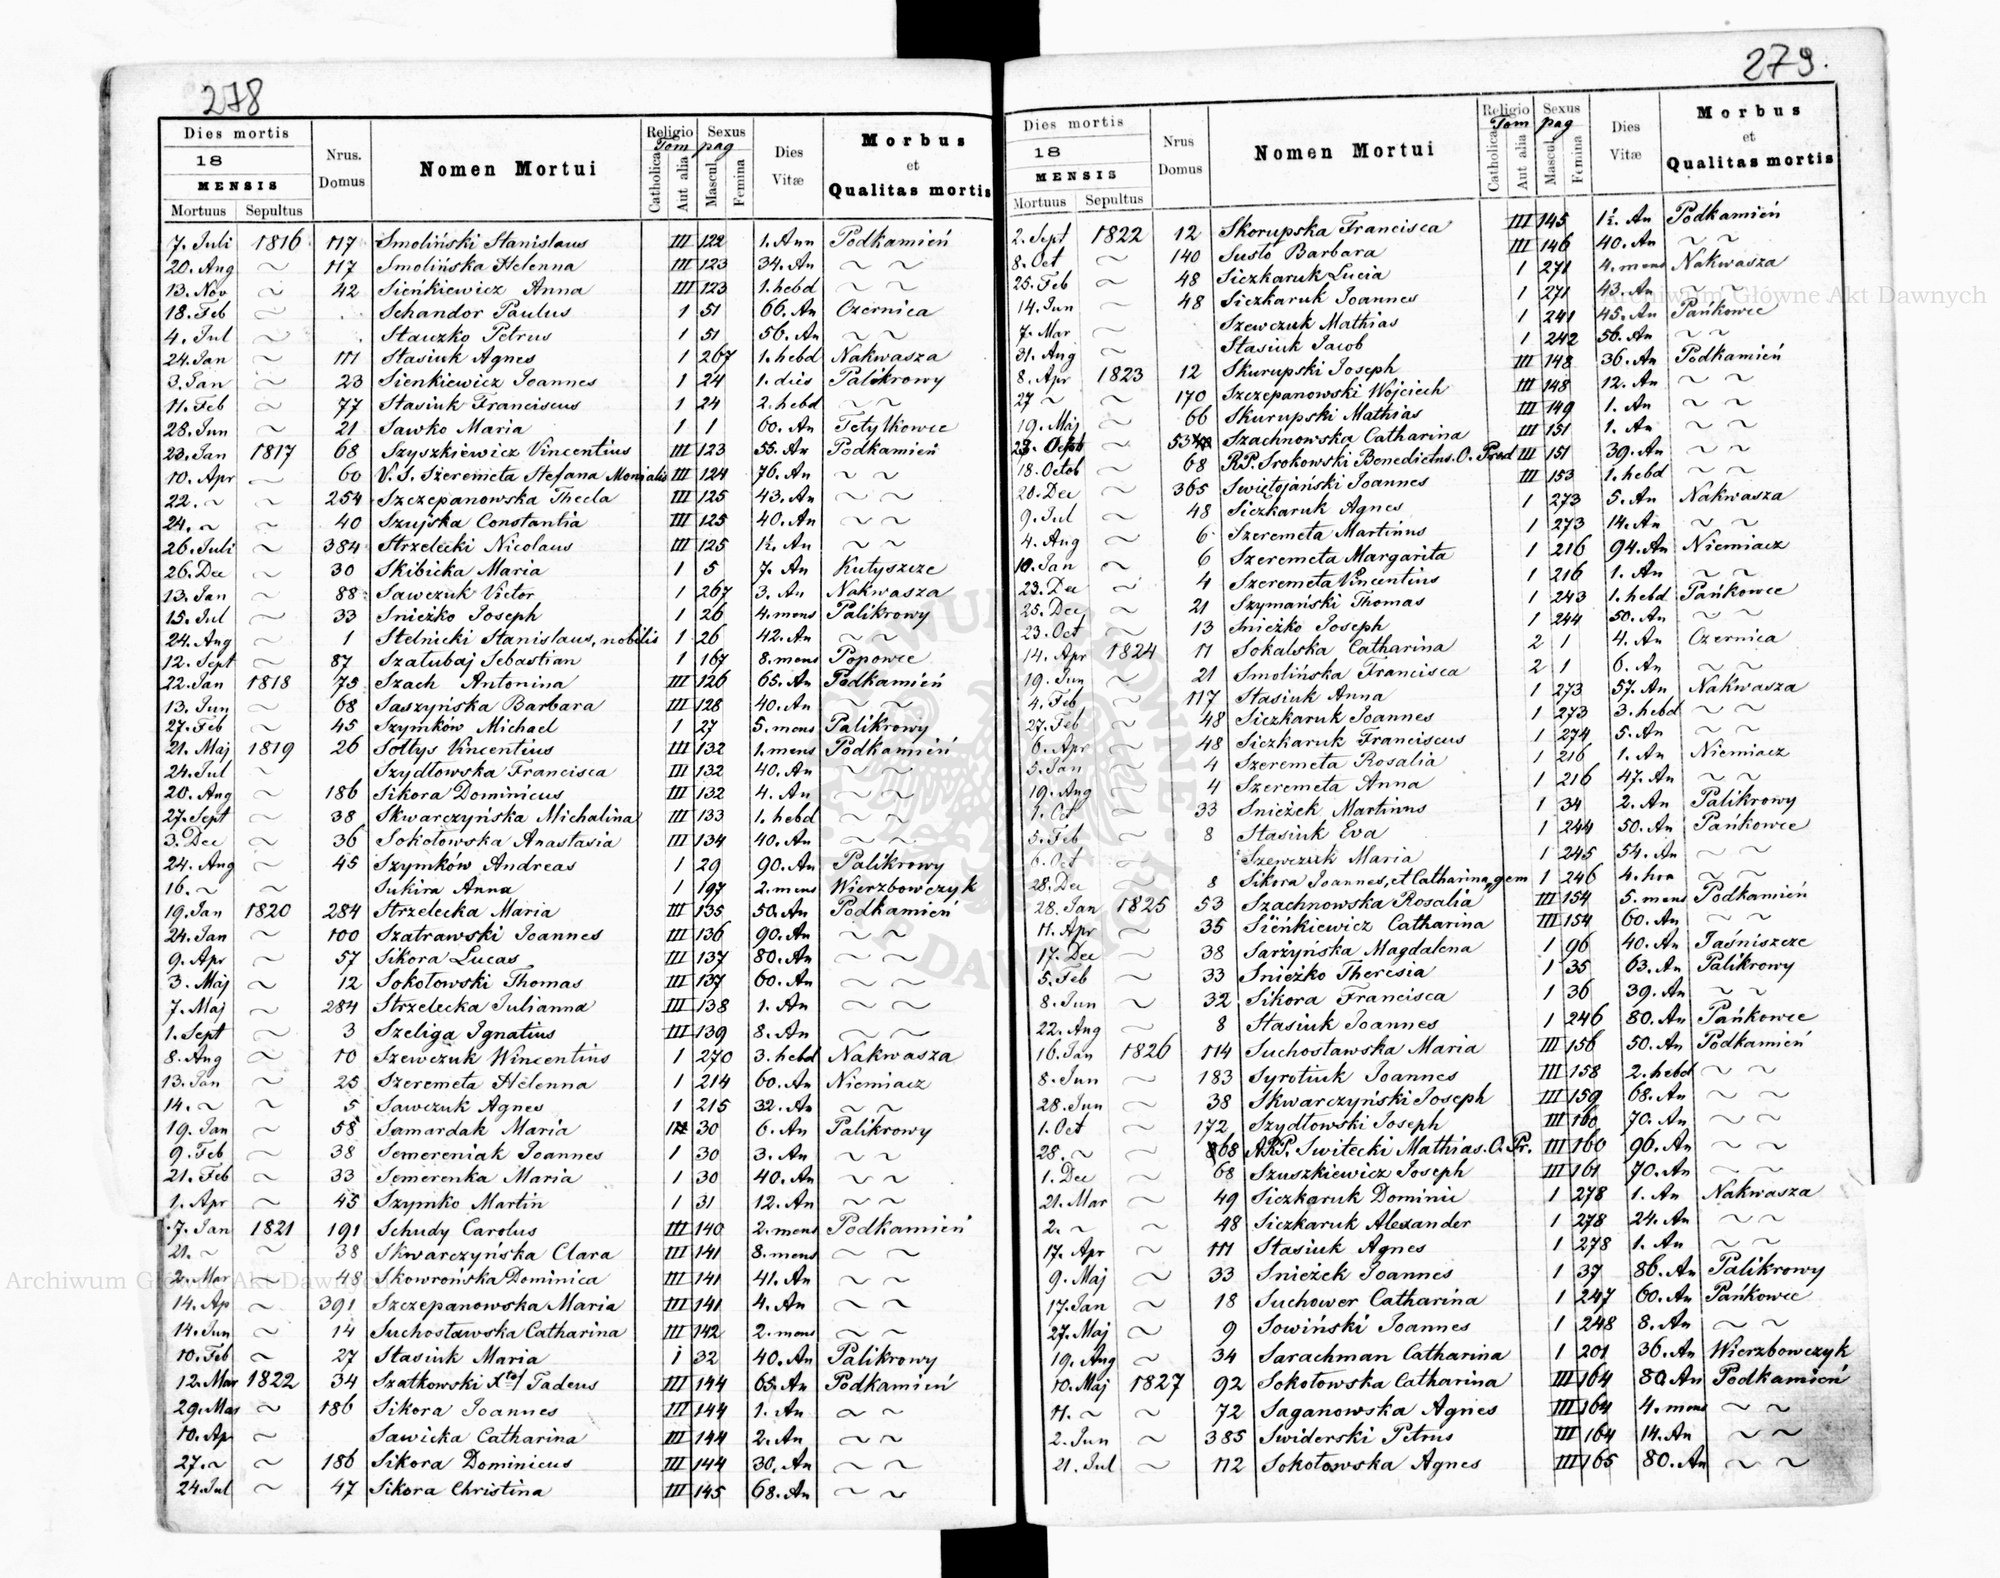 278
Dies mortis Nrus. Domus Nomen Mortui Religio Sexus Dies Vitæ Morbus et Qualitas mortis
Tom pag
18
MENSIS
Catholica Aut alia Mascul. Femina
Mortuus Sepultus
7. Juli 1816 117 Smoliński Stanislaus III 122 1. Ann Podkamień
20. Aug ~ 117 Smolińska Helenna III 123 34. An ~ ~
13. Nov ~ 42 Sieńkiewicz Anna III 123 1. hebd ~ ~
18. Feb ~ Schandor Paulus 1 51 66. An Czernica
4. Jul ~ Stauzko Petrus 1 51 56. An ~ ~
24. Jan ~ 111 Stasiuk Agnes 1 267 1. hebd Nakwasza
3. Jan ~ 23 Sienkiewicz Joannes 1 24 1. dies Palikrowy
11. Feb ~ 77 Stasiuk Franciscus 1 24 2. hebd ~ ~
28. Jun ~ 21 Sawko Maria 1 1 60. An Fetylkowce
23. Jan 1817 68 Szyszkiewicz Vincentius III 123 55. An Podkamień
10. Apr ~ 60 V. S. Szeremeta Stefana Monialis III 124 76. An ~ ~
22. ~ ~ 254 Szczepanowska Thecla III 125 43. An ~ ~
24. ~ ~ 40 Szujska Constantia III 125 40. An ~ ~
26. Juli ~ 384 Strzelecki Nicolaus III 125 1½. An ~ ~
26. Dec ~ 30 Skibicka Maria 1 5 7. An Kutyszcze
13. Jan ~ 88 Sawczuk Victor 1 267 3. An Nakwasza
15. Jul ~ 33 Snieżko Joseph 1 26 4. mens Palikrowy
24. Aug ~ 1 Stelnicki Stanislaus, nobilis 1 26 42. An ~ ~
12. Sept ~ 87 Szałubaj Sebastian 1 167 8. mens Popowce
22. Jan 1818 75 Szach Antonina III 126 65. An Podkamień
13. Jun ~ 68 Saszyńska Barbara III 128 40. An ~ ~
27. Feb ~ 45 Szymków Michael 1 27 5. mens Palikrowy
21. Maj 1819 26 Sołtys Vincentius III 132 1. mens Podkamień
24. Jul ~ Szydłowska Francisca III 132 40. An ~ ~
20. Aug ~ 186 Sikora Dominicus III 132 4. An ~ ~
27. Sept ~ 38 Skwarczyńska Michalina III 133 1. hebd ~ ~
3. Dec ~ 36 Sokołowska Anastasia III 134 40. An ~ ~
24. Aug ~ 45 Szymków Andreas 1 29 90. An Palikrowy
16. ~ ~ Sukira Anna 1 197 2. mens Wierzbowczyk
19. Jan 1820 284 Strzelecka Maria III 135 50. An Podkamień
24. Jan ~ 100 Szatrawski Joannes III 136 90. An ~ ~
9. Apr ~ 57 Sikora Lucas III 137 80. An ~ ~
3. Maj ~ 12 Sokołowski Thomas III 137 60. An ~ ~
7. Maj ~ 284 Strzelecka Julianna III 138 1. An ~ ~
1. Sept ~ 3 Szeliga Ignatius III 139 8. An ~ ~
8. Aug ~ 10 Szewczuk Wincentius 1 270 3. hebd Nakwasza
13. Jan ~ 25 Szeremeta Helenna 1 214 60. An Niemiacz
14. ~ ~ 5 Sawczuk Agnes 1 215 32. An ~ ~
19. Jan ~ 58 Samardak Maria 1 30 6. An Palikrowy
9. Feb ~ 38 Semereniak Joannes 1 30 3. An ~ ~
21. Feb ~ 33 Semerenka Maria 1 30 40. An ~ ~
1. Apr ~ 45 Szymko Martin 1 31 12. An ~ ~
7. Jan 1821 191 Schudy Carolus III 140 2. mens Podkamień
21. ~ ~ 38 Skwarczyńska Clara III 141 8. mens ~ ~
2. Mar ~ 48 Skowrońska Dominica III 141 41. An ~ ~
14. Ap ~ 391 Szczepanowska Maria III 141 4. An ~ ~
14. Jun ~ 14 Suchosławska Catharina III 142 2. mens ~ ~
10. Feb ~ 27 Stasiuk Maria 1 32 40. An Palikrowy
12. Mar 1822 34 Szatkowski Tadeus III 144 65. An Podkamień
29. Mar ~ 186 Sikora Joannes III 144 1. An ~ ~
10. Ap ~ Sawicka Catharina III 144 2. An ~ ~
27. ~ ~ 186 Sikora Dominicus III 144 30. An ~ ~
24. Jul ~ 47 Sikora Christina III 145 68. An ~ ~
279.
Dies mortis Nrus Domus Nomen Mortui Religio Sexus Dies Vitæ Morbus et Qualitas mortis
Tom pag
18
MENSIS
Catholica Aut alia Mascul Femina
Mortuus Sepultus
2. Sept 1822 12 Skorupska Francisca III 145 1½. An Podkamień
8. Oct ~ 140 Susto Barbara III 146 40. An ~ ~
25. Feb ~ 48 Siczkaruk Lucia 1 271 4. mens Nakwasza
14. Jun ~ 48 Siczkaruk Joannes 1 271 43. An ~ ~
7. Mar ~ Szewczuk Mathias 1 241 45. An Pańkowce
31. Aug ~ Stasiuk Jacob 1 242 56. An ~ ~
8. Apr 1823 12 Skurupski Joseph III 148 36. An Podkamień
27 ~ ~ 170 Szczepanowski Wojciech III 148 12. An ~ ~
19. Maj ~ 66 Skurupski Mathias III 149 1. An ~ ~
23. Octob ~ 53 Szachnowska Catharina III 151 1. An ~ ~
18. Octob ~ 68 RP. Srokowski Benedictus. O. Pred III 151 39. An ~ ~
20. Dec ~ 365 Swiętojański Joannes III 153 1. hebd ~ ~
9. Jul ~ 48 Siczkaruk Agnes 1 273 5. An Nakwasza
4. Aug ~ 6 Szeremeta Martinus 1 273 14. An ~ ~
10. Jan ~ 6 Szeremeta Margarita 1 216 94. An Niemiacz
23. Dec ~ 4 Szeremeta Vincentius 1 216 1. An ~ ~
25. Dec ~ 21 Szymański Thomas 1 243 1. hebd Pańkowce
23. Oct ~ 13 Snieżko Joseph 1 244 50. An ~ ~
14. Apr 1824 11 Sokalska Catharina 2 1 4. An Czernica
19. Jun ~ 21 Smolińska Francisca 2 1 6. An ~ ~
4. Feb ~ 117 Stasiuk Anna 1 273 57. An Nakwasza
27. Feb ~ 48 Siczkaruk Joannes 1 273 3. hebd ~ ~
6. Apr ~ 48 Siczkaruk Franciscus 1 274 5. An ~ ~
5. Jan ~ 4 Szeremeta Rosalia 1 216 1. An Niemiacz
19. Aug ~ 4 Szeremeta Anna 1 216 47. An ~ ~
1. Oct ~ 33 Snieżek Martinus 1 34 2. An Palikrowy
5. Feb ~ 8 Stasiuk Eva 1 244 50. An Pańkowce
6. Oct ~ Szewczuk Maria 1 245 54. An ~ ~
28. Dec ~ 8 Sikora Joannes, et Catharina, gem 1 246 4. hor ~ ~
28. Jan 1825 53 Szachnowska Rosalia III 154 5. mens Podkamień
11. Apr ~ 35 Sieńkiewicz Catharina III 154 60. An ~ ~
17. Dec ~ 38 Sarżyńska Magdalena 1 96 40. An Jaśniszcze
5. Feb ~ 33 Snieżko Theresia 1 35 63. An Palikrowy
8. Jun ~ 32 Sikora Francisca 1 36 39. An ~ ~
22. Aug ~ 8 Stasiuk Joannes 1 246 80. An Pańkowce
16. Jan 1826 114 Suchosławska Maria III 156 50. An Podkamień
8. Jun ~ 183 Syrotiuk Joannes III 158 2. hebd ~ ~
28. Jun ~ 38 Skwarczyński Joseph III 159 68. An ~ ~
1. Oct ~ 172 Szydłowski Joseph III 160 70. An ~ ~
28. ~ ~ 68 ARP. Switecki Mathias. O. Pr. III 160 96. An ~ ~
1. Dec ~ 68 Szuszkiewicz Joseph III 161 70. An ~ ~
21. Mar ~ 49 Siczkaruk Dominic 1 278 1. An Nakwasza
2. ~ ~ 48 Siczkaruk Alexander 1 278 24. An ~ ~
17. Apr ~ 111 Stasiuk Agnes 1 278 1. An ~ ~
9. Maj ~ 33 Snieżek Joannes 1 37 86. An Palikrowy
17. Jan ~ 18 Suchower Catharina 1 247 60. An Pańkowce
27. Maj ~ 9 Sowiński Joannes 1 248 8. An ~ ~
19. Aug ~ 34 Sarachman Catharina 1 201 36. An Wierzbowczyk
10. Maj 1827 92 Sokołowska Catharina III 164 80 An Podkamień
11. ~ ~ 72 Saganowska Agnes III 164 4. mens ~ ~
2. Jun ~ 385 Swiderski Petrus III 164 14. An ~ ~
21. Jul ~ 112 Sokołowska Agnes III 165 80. An ~ ~
Archiwum Główne Akt Dawnych
Archiwum Główne Akt Dawnych